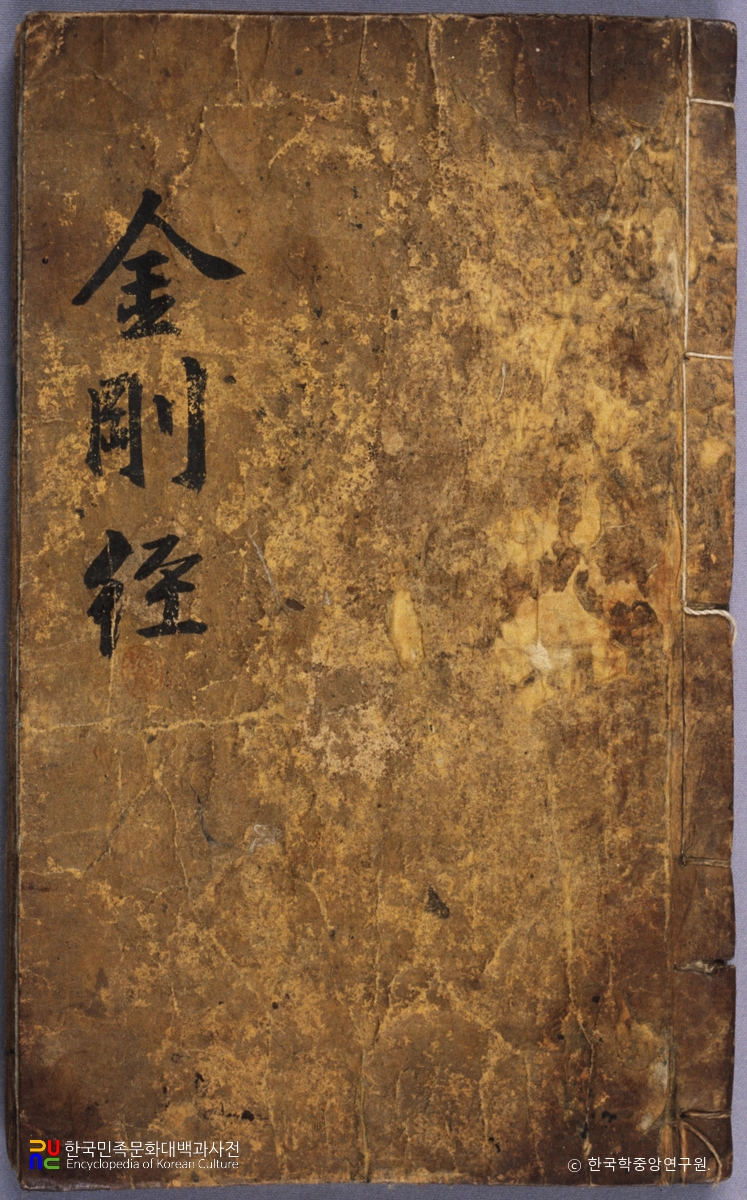 金剛经
한국민족문화대백과사전
Encyclopedia of Korean Culture
© 한국학중앙연구원